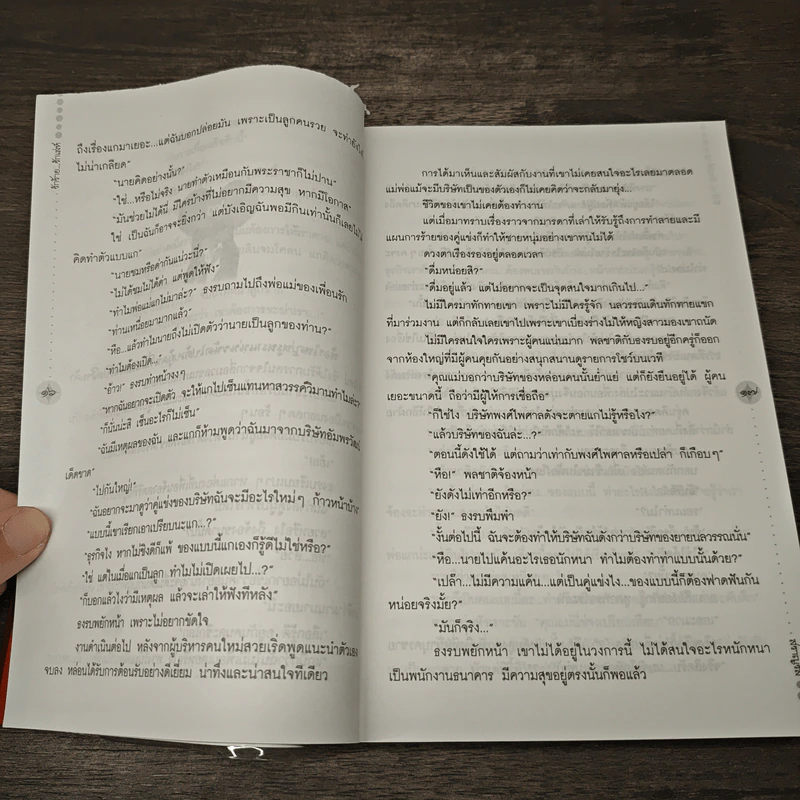 รักร้าย...รักเล่ห์
ถึงเรื่องแกมาเยอะ...แต่ฉันบอกปล่อยมัน เพราะเป็นลูกคนรวย จะทำยังไงก็
ไม่น่าเกลียด"
"นายคิดอย่างนั้น?"
"ใช่...หรือไม่จริง นายทำตัวเหมือนกับพระราชาก็ไม่ปาน"
"มันช่วยไม่ได้นี่ มีใครบ้างที่ไม่อยากมีความสุข หากมีโอกาส"
ใช่ เป็นฉันก็อาจจะยิ่งกว่า แต่บังเอิญฉันพอมีกินเท่านั้นก็เลยไม่ได้
คิดทำตัวแบบแก"
"นายชมหรือด่ากันแน่วะนี่?"
"ไม่ได้ชมไม่ได้ด่า แต่พูดให้ฟัง"
"ทำไมพ่อแม่แกไม่มาล่ะ?" ธงรบถามไปถึงพ่อแม่ของเพื่อนรัก
"ท่านเหนื่อยมามากแล้ว"
"หือ...แล้วทำไมนายถึงไม่เปิดตัวว่านายเป็นลูกของท่าน?"
"ทำไมต้องเปิด..."
"อ้าว!" ธงรบทำหน้างงๆ
"หากฉันอยากจะเปิดตัว จะให้แกไปเซ็นแทนหาสวรรค์วิมานทำไมล่ะ?"
"ก็นั่นน่ะสิ เซ็นอะไรก็ไม่เซ็น"
"ฉันมีเหตุผลของฉัน และแกก็ห้ามพูดว่าฉันมาจากบริษัทอัมพรวัฒน์
เด็ดขาด"
"ไปกันใหญ่!"
"ฉันอยากจะมาดูว่าคู่แข่งของบริษัทฉันจะมีอะไรใหม่ๆ ก้าวหน้าบ้าง"
"แบบนี้เขาเรียกเอาเปรียบนะแก...?"
"ธุรกิจไง หากไม่ชิงดีก็แพ้ ของแบบนี้แกเองก็รู้ดีไม่ใช่หรือ?"
"ใช่ แต่ในเมื่อแกเป็นลูก ทำไมไม่เปิดเผยไป...?"
"ก็บอกแล้วไงว่ามีเหตุผล แล้วจะเล่าให้ฟังทีหลัง"
ธงรบพยักหน้า เพราะไม่อยากขัดใจ
งานดำเนินต่อไป หลังจากผู้บริหารคนใหม่สวยเริ่ดพูดแนะนำตัวเอง
จบลง หล่อนได้รับการต้อนรับอย่างดีเยี่ยม น่าทึ่งและน่าสนใจทีเดียว
การได้มาเห็นและสัมผัสกับงานที่เขาไม่เคยสนใจอะไรเลยมาตลอด
แม่พ่อแม้จะมีบริษัทเป็นของตัวเองก็ไม่เคยคิดว่าจะกลับมายุ่ง...
ชีวิตของเขาไม่เคยต้องทำงาน
แต่เมื่อมาทราบเรื่องราวจากมารดาที่เล่าให้รับรู้ถึงการทำลายและมี
แผนการร้ายของคู่แข่งก็ทำให้ชายหนุ่มอย่างเขาทนไม่ได้
ดวงตาเรืองรองอยู่ตลอดเวลา
"ดื่มหน่อยสิ?"
"ดื่มอยู่แล้ว แต่ไม่อยากจะเป็นจุดสนใจมากเกินไป..."
ไม่มีใครมาทักทายเขา เพราะไม่มีใครรู้จัก นลวรรณเดินทักทายแขก
ที่มาร่วมงาน แต่ก็กลับเลยเขาไปเพราะเขาเบี่ยงร่างไม่ให้หญิงสาวมองเขาถนัด
ไม่มีใครสนใจใครเพราะผู้คนแน่นมาก พลชาติกับธงรบอยู่อีกครู่ก็ออก
จากห้องใหญ่ที่มีผู้คนคุยกันอย่างสนุกสนานดูรายการโชว์บนเวที
"คุณแม่บอกว่าบริษัทของหล่อนคนนั้นย่ำแย่ แต่ก็ยังยืนอยู่ได้ ผู้คน
เยอะขนาดนี้ ถือว่ามีผู้ให้การเชื่อถือ"
"ก็ใช่ไง บริษัทพงศ์ไพศาลดังจะตายแกไม่รู้หรือไง?"
"แล้วบริษัทของฉันล่ะ...?"
"ตอนนี้ดังใช้ได้ แต่ถามว่าเท่ากับพงศ์ไพศาลหรือเปล่า ก็เกือบๆ"
"หือ!" พลชาติจ้องหน้า
"ยังดังไม่เท่าอีกหรือ?"
"ยัง!" ธงรบพึมพำ
"งั้นต่อไปนี้ ฉันจะต้องทำให้บริษัทฉันดังกว่าบริษัทของยายนลวรรณนั่น"
"หือ...นายไปแค้นอะไรเธอนักหนา ทำไมต้องทำท่าแบบนั้นด้วย?"
"เปล๊า...ไม่มีความแค้น...แต่เป็นคู่แข่งไง...ของแบบนี้ก็ต้องฟาดฟันกัน
หน่อยจริงมั้ย?"
"มันก็จริง..."
ธงรบพยักหน้า เขาไม่ได้อยู่ในวงการนี้ ไม่ได้สนใจอะไรหนักหนา
เป็นพนักงานธนาคาร มีความสุขอยู่ตรงนั้นก็พอแล้ว